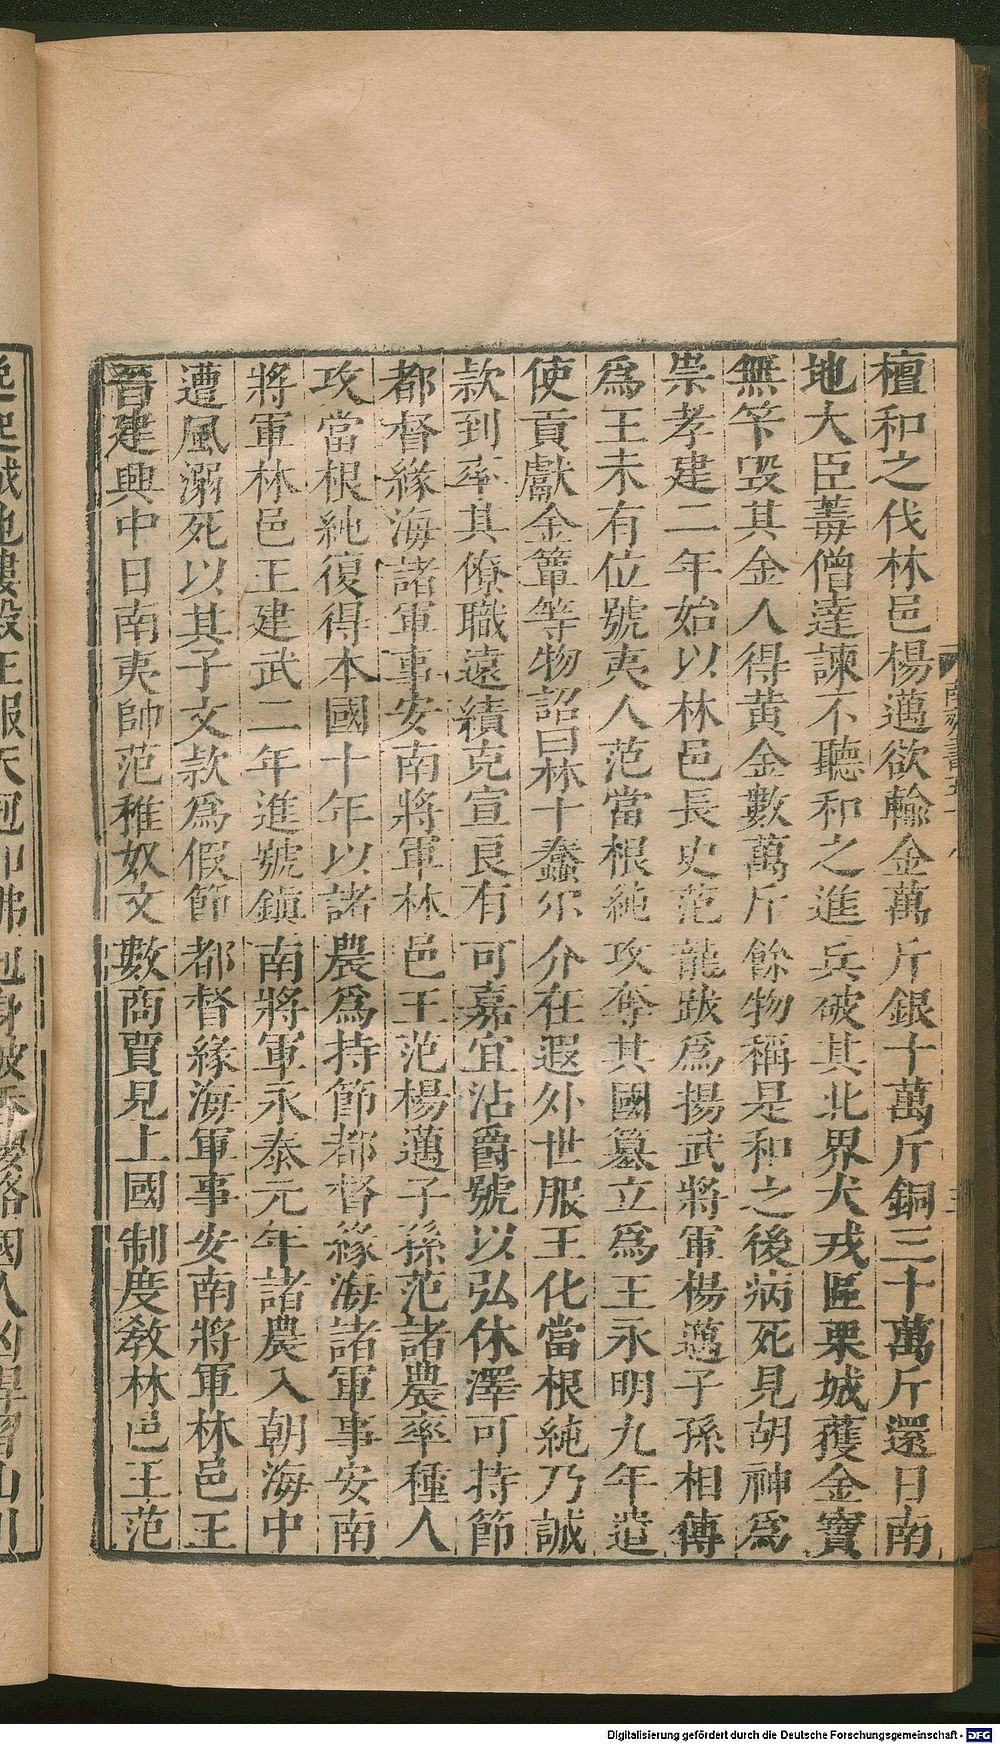 檀和之伐林邑楊邁欲輸金萬斤銀十萬斤銅三十萬斤還日南
地大臣䓯僧達諫不聽和之進兵破其北界犬戎區栗城獲金寶
無筭毀其金人得黃金數萬斤餘物稱是和之後病死見胡神爲
祟孝建二年始以林邑長史范龍跋爲揚武將軍楊邁子孫相傳
爲王未有位號夷人范當根純攻奪其國簒立爲王永明九年遣
使貢獻金簟等物詔曰林十蠢尒介在遐外世服王化當根純乃誠
款到率其僚職遠績克宣良有可嘉宜沾爵號以弘休澤可持節
都督緣海諸軍事安南將軍林邑王范楊邁子孫范諸農率種人
攻當根純復得本國十年以諸農爲持節都督緣海諸軍事安南
將軍林邑王建武二年進號鎮南將軍永泰元年諸農入朝海中
遭風溺死以其子文款爲假節都督緣海軍事安南將軍林邑王
晉建興中日南夷帥范稚奴文數商賈見上國制度敎林邑王范
南齊書五十八
城池樓殿王服天冠如佛冠身被
國人凶悍習山川